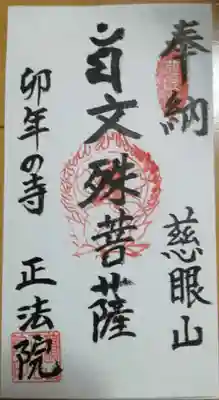 奉納 慈眼山
文殊菩薩
卯年の寺 正法院